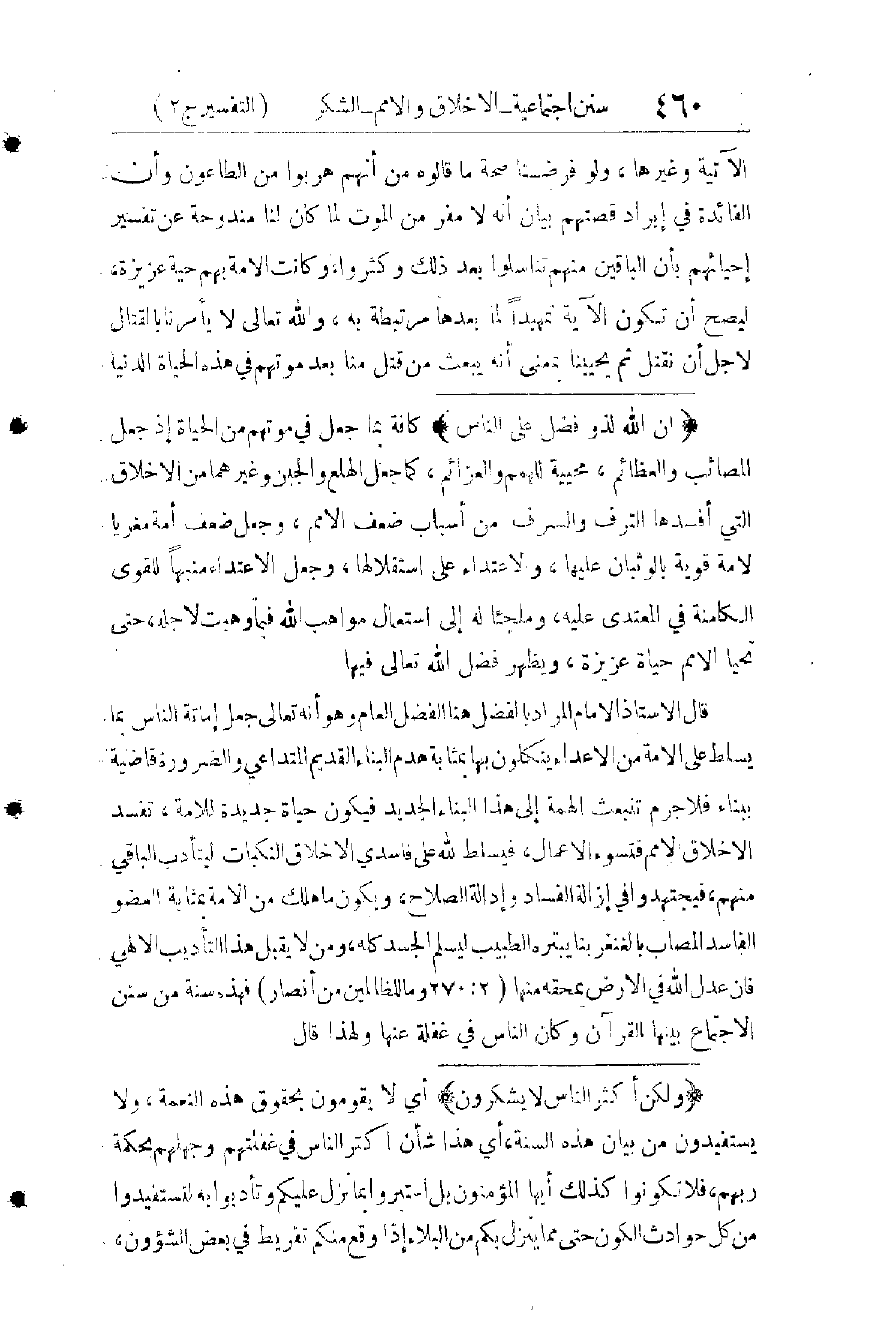 ٤٦٠ سنن اجتماعية ـ الاخلاق والامم ـ الشكر (التفسير ج٢)
الآتية وغيرها، ولو فرضنا صحة ما قالوه من أنهم هربوا من الطاعون وأن
الفائدة في إيراد قصتهم بيان أنه لا مفر من الموت لما كان لنا مندوحة عن تفسير
إحيائهم بأن الباقين منهم تناسلوا بعد ذلك وكثروا، وكانت الامة بهم حية عزيزة،
ليصح أن تكون الآية تمهيداً لما بعدها مرتبطة به، والله تعالى لا يأمرنا بالقتال
لاجل أن نقتل ثم يحيينا بمعنى أنه يبعث من قتل منا بعد موتهم في هذه الحياة الدنيا
﴿ ان الله لذو فضل على الناس ﴾ كافة بما جعل في موتهم من الحياة إذ جعل
المصائب والعظائم، محيية للهمم والعزائم، كما جعل الهلع والجبن وغيرهما من الاخلاق
التي أفسدها الترف والسرف من أسباب ضعف الامم، وجعل ضعف أمة مغريا
لامة قوية بالوثبان عليها، والاعتداء على استقلالها، وجعل الاعتداء منبهاً للقوى
الكامنة في المعتدى عليه، وملجئا له إلى استعمال مواهب الله فيما وهبت لاجله، حتى
تحيا الامم حياة عزيزة، ويظهر فضل الله تعالى فيها
قال الاستاذ الامام المراد بالفضل هنا الفضل العام وهو أنه تعالى جعل إماتة الناس بما
يسلط على الامة من الاعداء ينكلون بها بمثابة هدم البناء القديم المتداعي والضرورة قاضية
ببناء فلا جرم تنبعث الهمة إلى هذا البناء الجديد فيكون حياة جديدة للامة، تفسد
الاخلاق الامم فتسوء الاعمال، فيسلط الله على فاسدي الاخلاق النكبات ليتأدب الباقي
منهم، فيجتهدوا في إزالة الفساد وإدالة الصلاح، ويكون ما هلك من الامة بمثابة العضو
الفاسد المصاب بالغنغرينا يبتره الطبيب ليسلم الجسد كله، ومن لا يقبل هذا التأديب الالهي
فان عدل الله في الارض يمحقه منها ( ٢: ٢٧٠ وما للظالمين من أنصار) فهذه سنة من سنن
الاجتماع بينها القرآن وكان الناس في غفلة عنها ولهذا قال
﴿ولكن أكثر الناس لا يشكرون﴾ أي لا يقومون بحقوق هذه النعمة، ولا
يستفيدون من بيان هذه السنة، أي هذا شأن أكثر الناس في غفلتهم وجهلهم بحكمة
ربهم، فلا تكونوا كذلك أيها المؤمنون بل اعتبروا بما نزل عليكم وتأدبوا به لتستفيدوا
من كل حوادث الكون حتى مما ينزل بكم من البلاء إذا وقع منكم تفريط في بعض الشؤون،